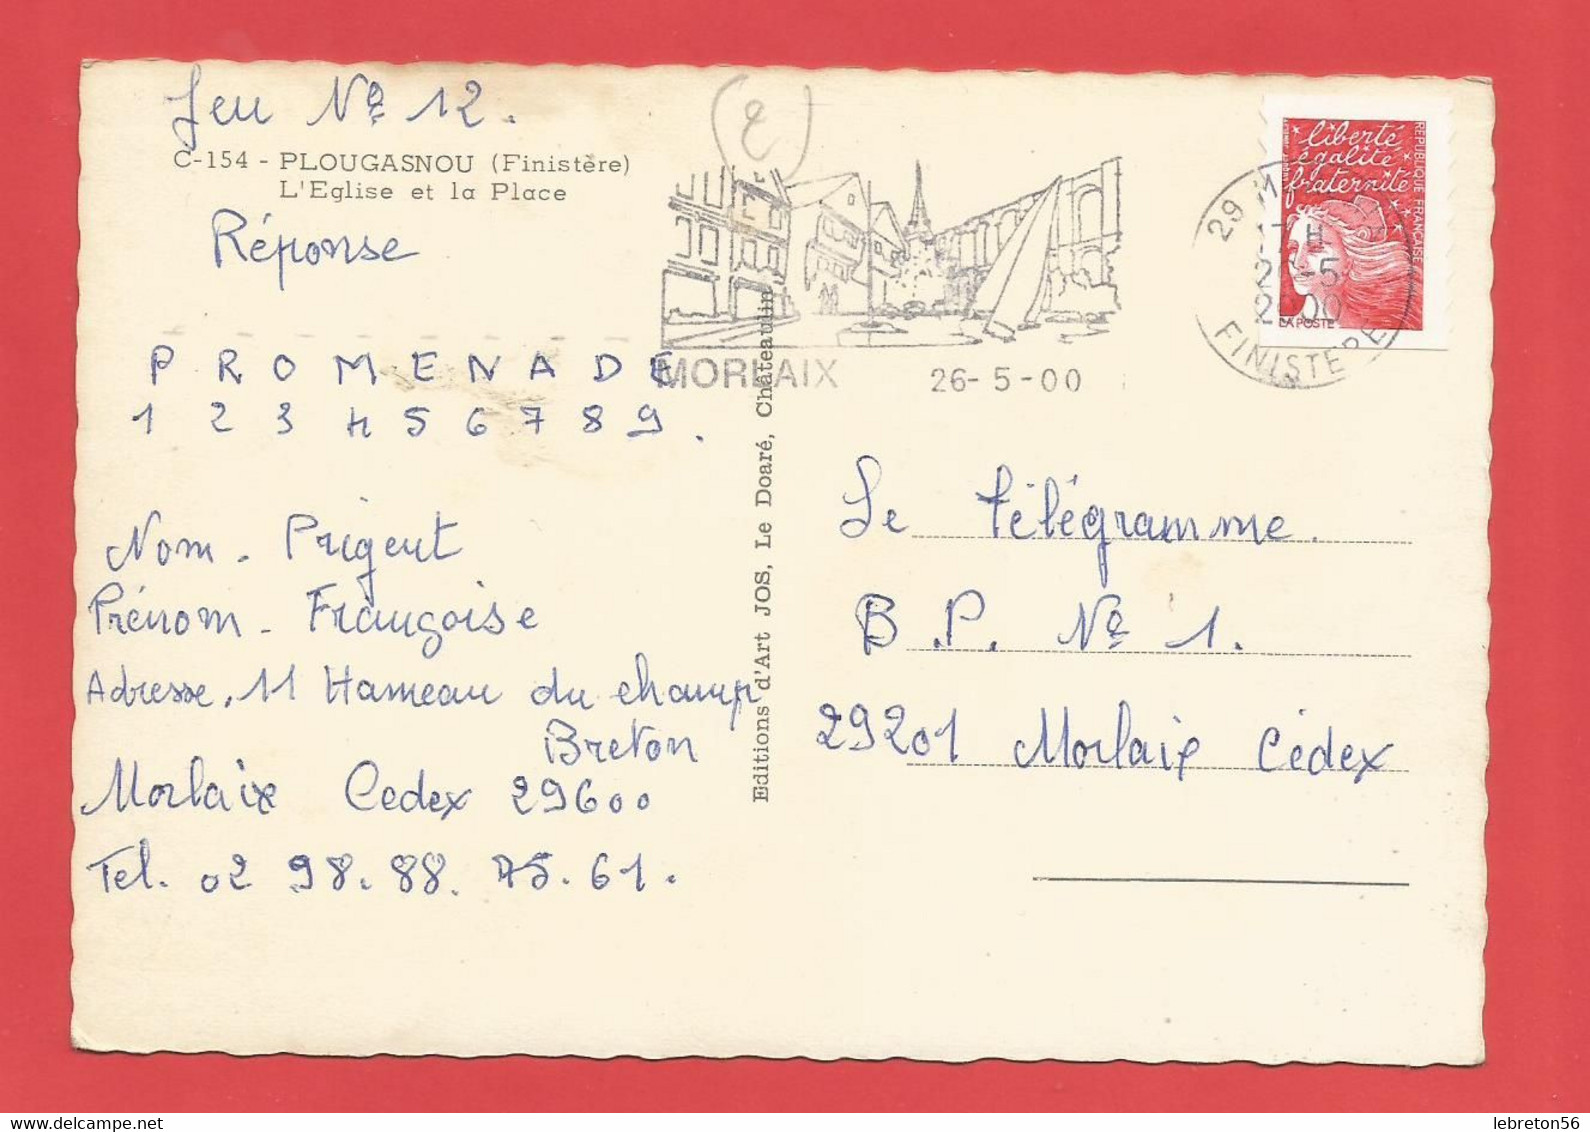 Jeu Nº 12.
C-154 - PLOUGASNOU (Finistère)
L'Eglise et la Place
Réponse
P R O M E N A D E
1 2 3 4 5 6 7 8 9.
Nom. Prigent
Prénom. Françoise
Adresse. 11 Hameau du champ
Breton
Morlaix Cedex 29600
Tel. 02 98. 88. 75. 61.
Editions d'Art JOS, Le Doaré, Châteaulin
MORLAIX 26-5-00
29
H
-5
2000
FINISTERE
liberté
égalité
fraternité
REPUBLIQUE FRANÇAISE
LA POSTE
Le Télégramme.
B.P. Nº 1.
29201 Morlaix Cédex
lebreton56